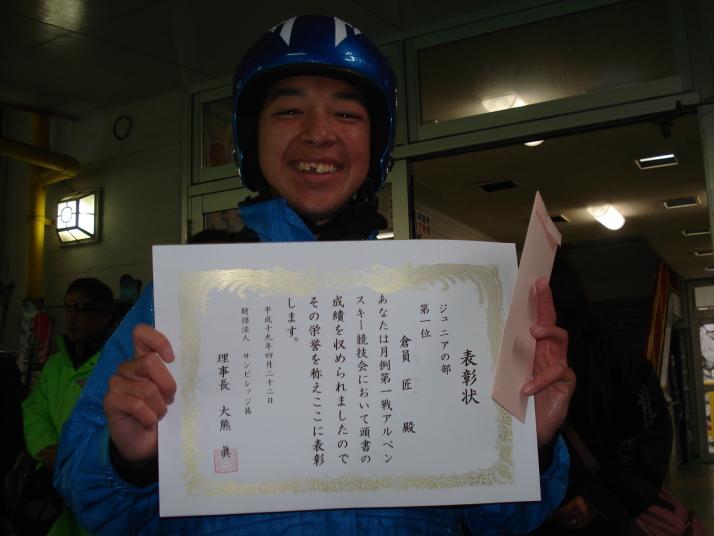 表彰状
ジュニアの部
第一位
倉員 匠 殿
あなたは月例第一戦アルペン
スキー競技会において頭書の
成績を収められましたので
その栄誉を称えここに表彰
します。
平成十九年四月二十二日
財団法人 サンビレッジ茜
理事長 大熊 眞